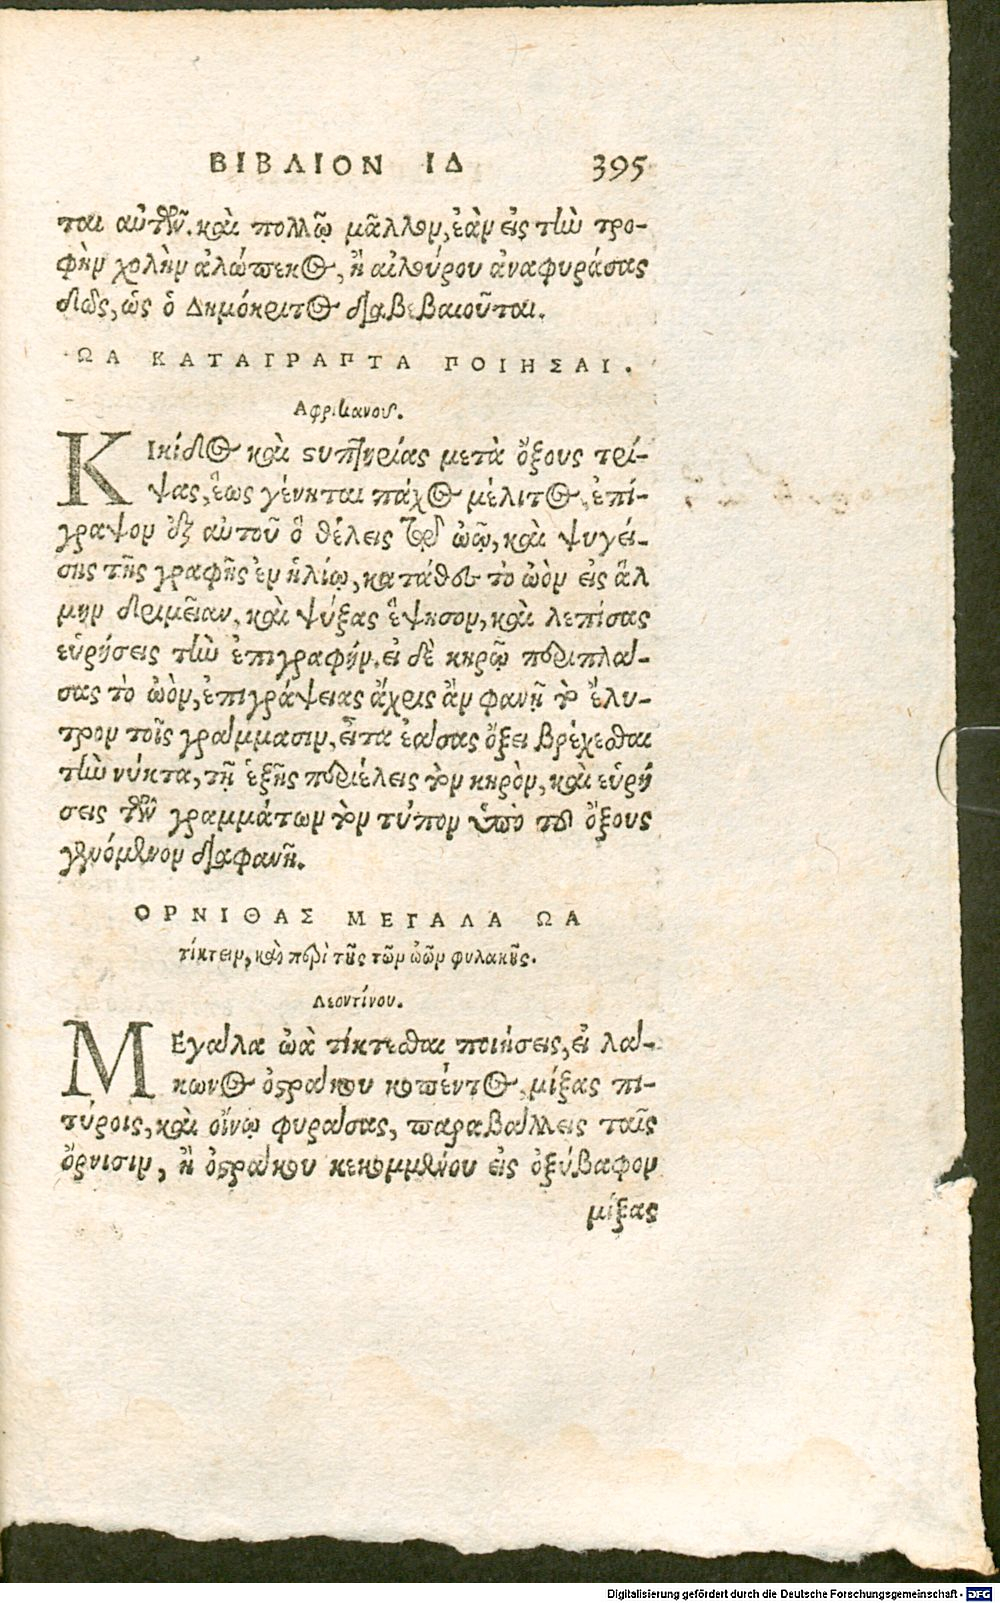 ΒΙΒΛΙΟΝ ΙΔ 395
ται αὐτῶν. καὶ πολλῷ μᾶλλον, ἐὰν εἰς τὴν τρο-
φὴν χολὴν ἀλώπεκος, ἢ αἰλούρου ἀναφυράσας
διδῷς, ὡς ὁ Δημόκριτος διαβεβαιοῦται.
ΩΑ ΚΑΤΑΓΡΑΠΤΑ ΠΟΙΗΣΑΙ.
Αφρικανοῦ.
ΚΙκίδος καὶ στυπτηρίας μετὰ ὄξους τρί-
ψας, ἕως γένηται πάχος μέλιτος, ἐπί-
γραψον ἐξ αὐτοῦ ὃ θέλεις τῷ ὠῷ, καὶ ψυγεί-
σης τῆς γραφῆς ἐν ἡλίῳ, κατάθου τὸ ὠὸν εἰς ἅλ
μην δριμεῖαν, καὶ ψύξας ἕψησον, καὶ λεπίσας
εὑρήσεις τὴν ἐπιγραφήν. εἰ δὲ κηρῷ περιπλά-
σας τὸ ὠὸν, ἐπιγράψειας ἄχρις ἂν φανῇ τὸ ἔλυ-
τρον τοῖς γράμμασιν, εἶτα ἐάσας ὄξει βρέχεσθαι
τὴν νύκτα, τῇ ἑξῆς περιέλεις τὸν κηρὸν, καὶ εὑρή
σεις τῶν γραμμάτων τὸν τύπον ὑπὸ τοῦ ὄξους
γενόμενον διαφανῆ.
ΟΡΝΙΘΑΣ ΜΕΓΑΛΑ ΩΑ
τίκτειν, καὶ περὶ τῆς τῶν ὠῶν φυλακῆς.
Λεοντίνου.
ΜΕγάλα ὠὰ τίκτεσθαι ποιήσεις, εἰ λά-
κωνος ὀστράκου κοπέντος, μίξας πι-
τύροις, καὶ οἴνῳ φυράσας, παραβάλλεις ταῖς
ὄρνισιν, ἢ ὀστράκου κεκομμένου εἰς ὀξύβαφον
μίξας
Digitalisierung gefördert durch die Deutsche Forschungsgemeinschaft - DFG